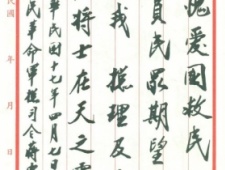 愧愛國救民
負民眾期望
我 總理及
將士在天之
華民國十七年四月七日
民革命軍總司令蔣
民國 年 月 日